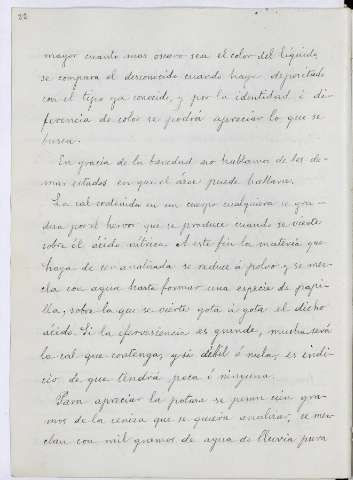 22
mayor cuanto mas oscuro sea el color del liquido,
se compara el desconocido cuando haya depositado
con el tipo ya conocido, y por la identidad ó di-
ferencia de color se podrá apreciar lo que se
busca.
En gracia de la brevedad no hablamos de los de-
mas estados en que el ázoe puede hallarse.
La cal contenida en un cuerpo cualquiera se gra-
dua por el hervor que se produce cuando se vierte
sobre él ácido nítrico. A este fin la materia que
haya de ser analizada se reduce á polvo y se mez-
cla con agua hasta formar una especie de papi-
lla, sobre la que se vierte gota á gota el dicho
ácido. Si la efervescencia es grande, mucha será
la cal que contenga, y si débil ó nula, es indi-
cio de que tendrá poca ó ninguna.
Para apreciar la potasa se ponen cien gra-
mos de la ceniza que se quiera analizar, se mez-
clan con mil gramos de agua de lluvia pura